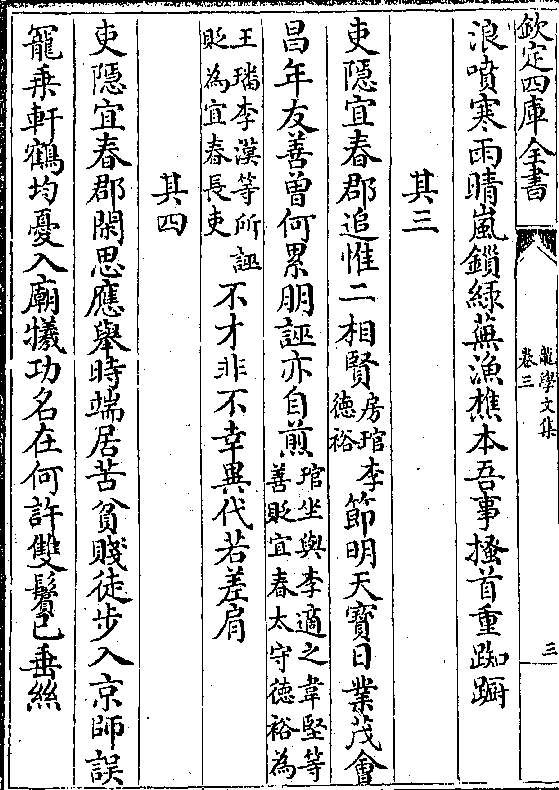 欽定四庫全書
龍學文集
卷三
三
浪噴寒雨晴嵐鎖綠蕪漁樵本吾事搔首重踟蹰
其三
吏隱宜春郡追惟二相賢房琯李德裕節明天寶日業茂會
昌年友善曾何累朋誣亦自煎琯坐與李適之韋堅等善貶宜春太守德裕為
王璠李漢等所誣貶為宜春長吏不才非不幸異代若差肩
其四
吏隱宜春郡閑思應舉時端居苦貧賤徒步入京師誤
籠乘軒鶴均憂入廟犧功名在何許雙鬢已垂絲